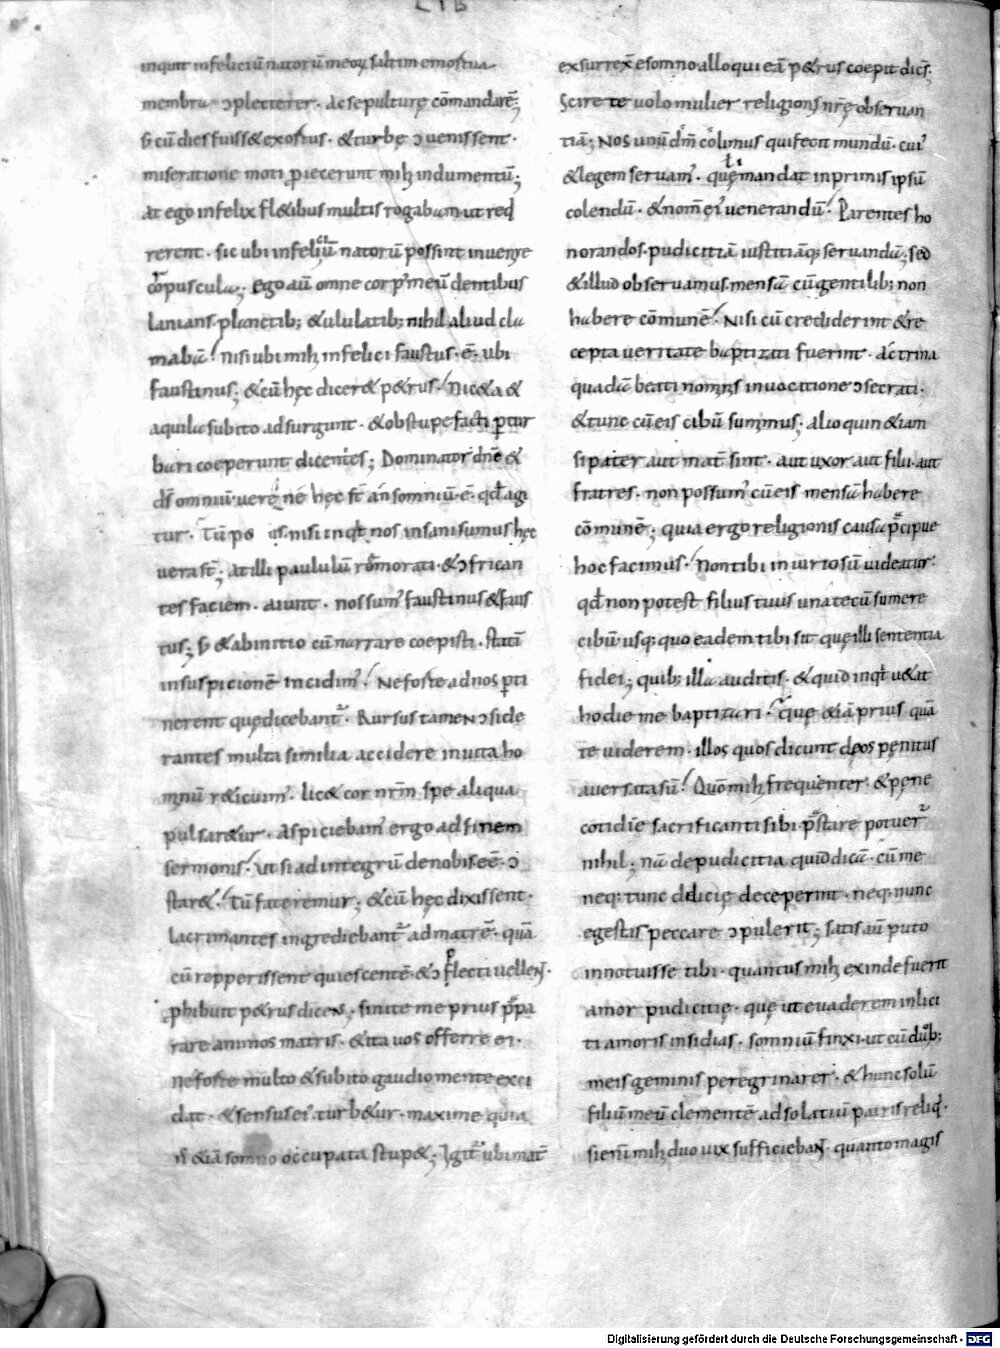 LIB
inquit infeliciū natorū meoꝝ saltim emostua
membra ɔplecterer· ac sepulturę cōmandarē;
s; cū dies fuiss& exortus· & turbę ɔuenissent·
miseratione moti proiecerunt mihi indumentū;
At ego infelix fl&ibus multis rogabam· ut req̄
rerent· sic ubi infeliciū natorū possint inuenire
corpuscula; ego aū omne corp' meū dentibus
lanians· planctib; & ululatib; nihil aliud cla
mabā! Nisi ubi mihi infelici faustus· ē· ubi
faustinus; & cū hęc dicer& p&rus! Nic&a &
aquila subito adsurgunt· & obstupefacti ꝑtur
bari coeperunt dicentes; Dominator dn̄e &
ds̄ omniū· uerę ne hęc st̄ an somniū· ē· qd̄ agi
tur· Tū p& us· nisi inqt̄ nos insani sumus hęc
uera st̄; at illi paululū remorati· & ɔfrican
tes faciem· aiunt· nos sum' faustinus & faus
tus; s; & ab initio cū narrare coepisti· statī
in suspicionē incidim'! Ne forte ad nos ꝑti
nerent quę dicebant'· Rursus tamen ɔside
rantes multa similia accidere in uita ho
minū r&icuim'· lic& cor nr̄m spe aliqua
pulsar&ur· Aspiciebam' ergo ad finem
sermonis! Ut si ad integrū de nobis eē· ɔ
star&! Tū fateremur; & cū hęc dixissent·
lacrimantes ingrediebant' ad matrē· quā
cū repperissent quiescentē· & ɔplecti uellent·
phibuit p&rus dicens· sinite me prius p̄pa
rare animos matris· & ita uos offerre ei·
ne forte multo & subito gaudio mente exci
dat· & sensus ei' turb&ur· maxime quia
n̄ & iā somno occupata stup&; Igit' ubi mat̄
exsurrex̄ e somno alloqui eā p&rus coepit dicēs;
Scire te uolo mulier religionis nr̄ę obseruan
tiā; Nos unū dm̄ colimus qui fecit mundū· cui'
& legem seruam'· quę mandat in primis ipsū
colendū· & nom̄ ei' uenerandū! Parentes ho
norandos· pudicitiā iustitiāq; seruandā; sed
& illud obseruamus· mensā cū gentilib; non
habere cōmunē! Nisi cū crediderint & re
cepta ueritate baptizati fuerint· Ac trina
quadā beati nominis inuocatione ɔsecrati·
& tunc cū eis cibū sumimus; alioquin & iam
si pater aut mat̄ sint· aut uxor aut filii· aut
fratres· non possum' cū eis mensā habere
cōmunē; quia ergo religionis causa p̄cipue
hoc facimus! Non tibi iniuriosū uideatur·
qd̄ non potest filius tuus una tecū sumere
cibū· usq; quo eadem tibi sit quę illi sententia
fidei; quib; illa auditis· & quid inqt̄ u&at
hodie me baptizari! quę & iā prius quā
te uiderem· illos quos dicunt deos pęnitus
auersata sū! Quō mihi frequenter & pęne
cotidie sacrificanti sibi p̄stare potuer'
nihil; nā de pudicitia quid dicā· cū me
neq; tunc delicię deceperint· neq; nunc
egestis peccare ɔpulerit; satis aū puto
innotuisse tibi· quantus mihi exinde fuerit
amor pudicitię· quę ut euaderem inlici
ti amoris insidias· somniū finxi· ut cū duob;
meis geminis peregrinarer· & hunc solū
filiū meū clementē ad solatiū patris reliq·
si enī mihi duo uix sufficiebant· quanto magis
Digitalisierung gefördert durch die Deutsche Forschungsgemeinschaft - DFG